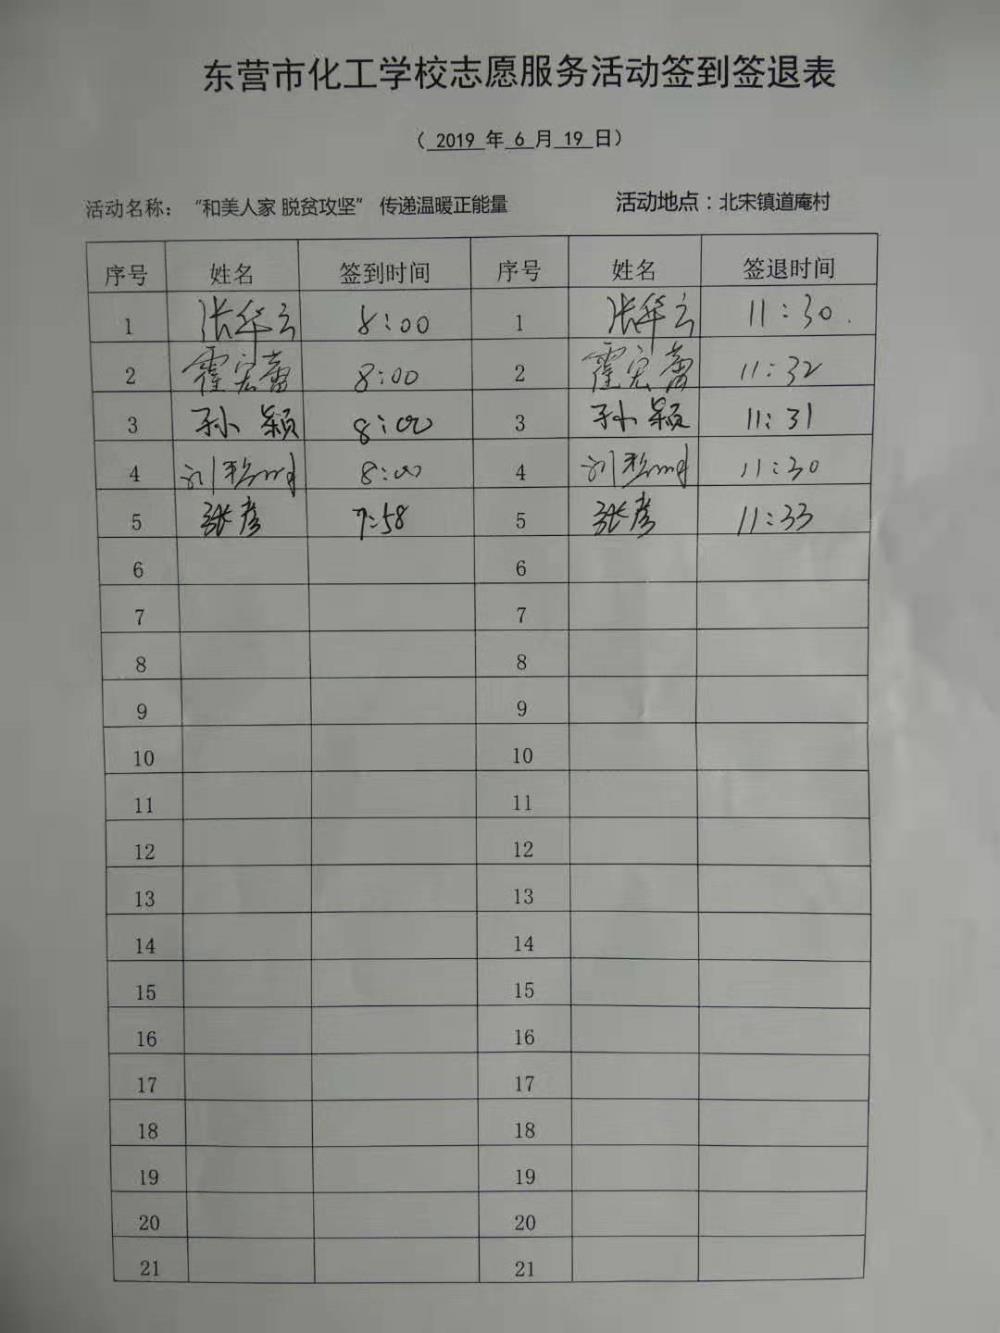 东营市化工学校志愿服务活动签到签退表
（ 2019 年 6 月 19 日）
活动名称：“和美人家 脱贫攻坚” 传递温暖正能量 活动地点：北宋镇道庵村
序号 姓名 签到时间 序号 姓名 签退时间
1 张华云 8:00 1 张华云 11:30
2 霍宏蕾 8:00 2 霍宏蕾 11:32
3 孙颖 8:00 3 孙颖 11:31
4 刘 8:00 4 刘 11:30
5 张彦 7:58 5 张彦 11:33
6 6
7 7
8 8
9 9
10 10
11 11
12 12
13 13
14 14
15 15
16 16
17 17
18 18
19 19
20 20
21 21